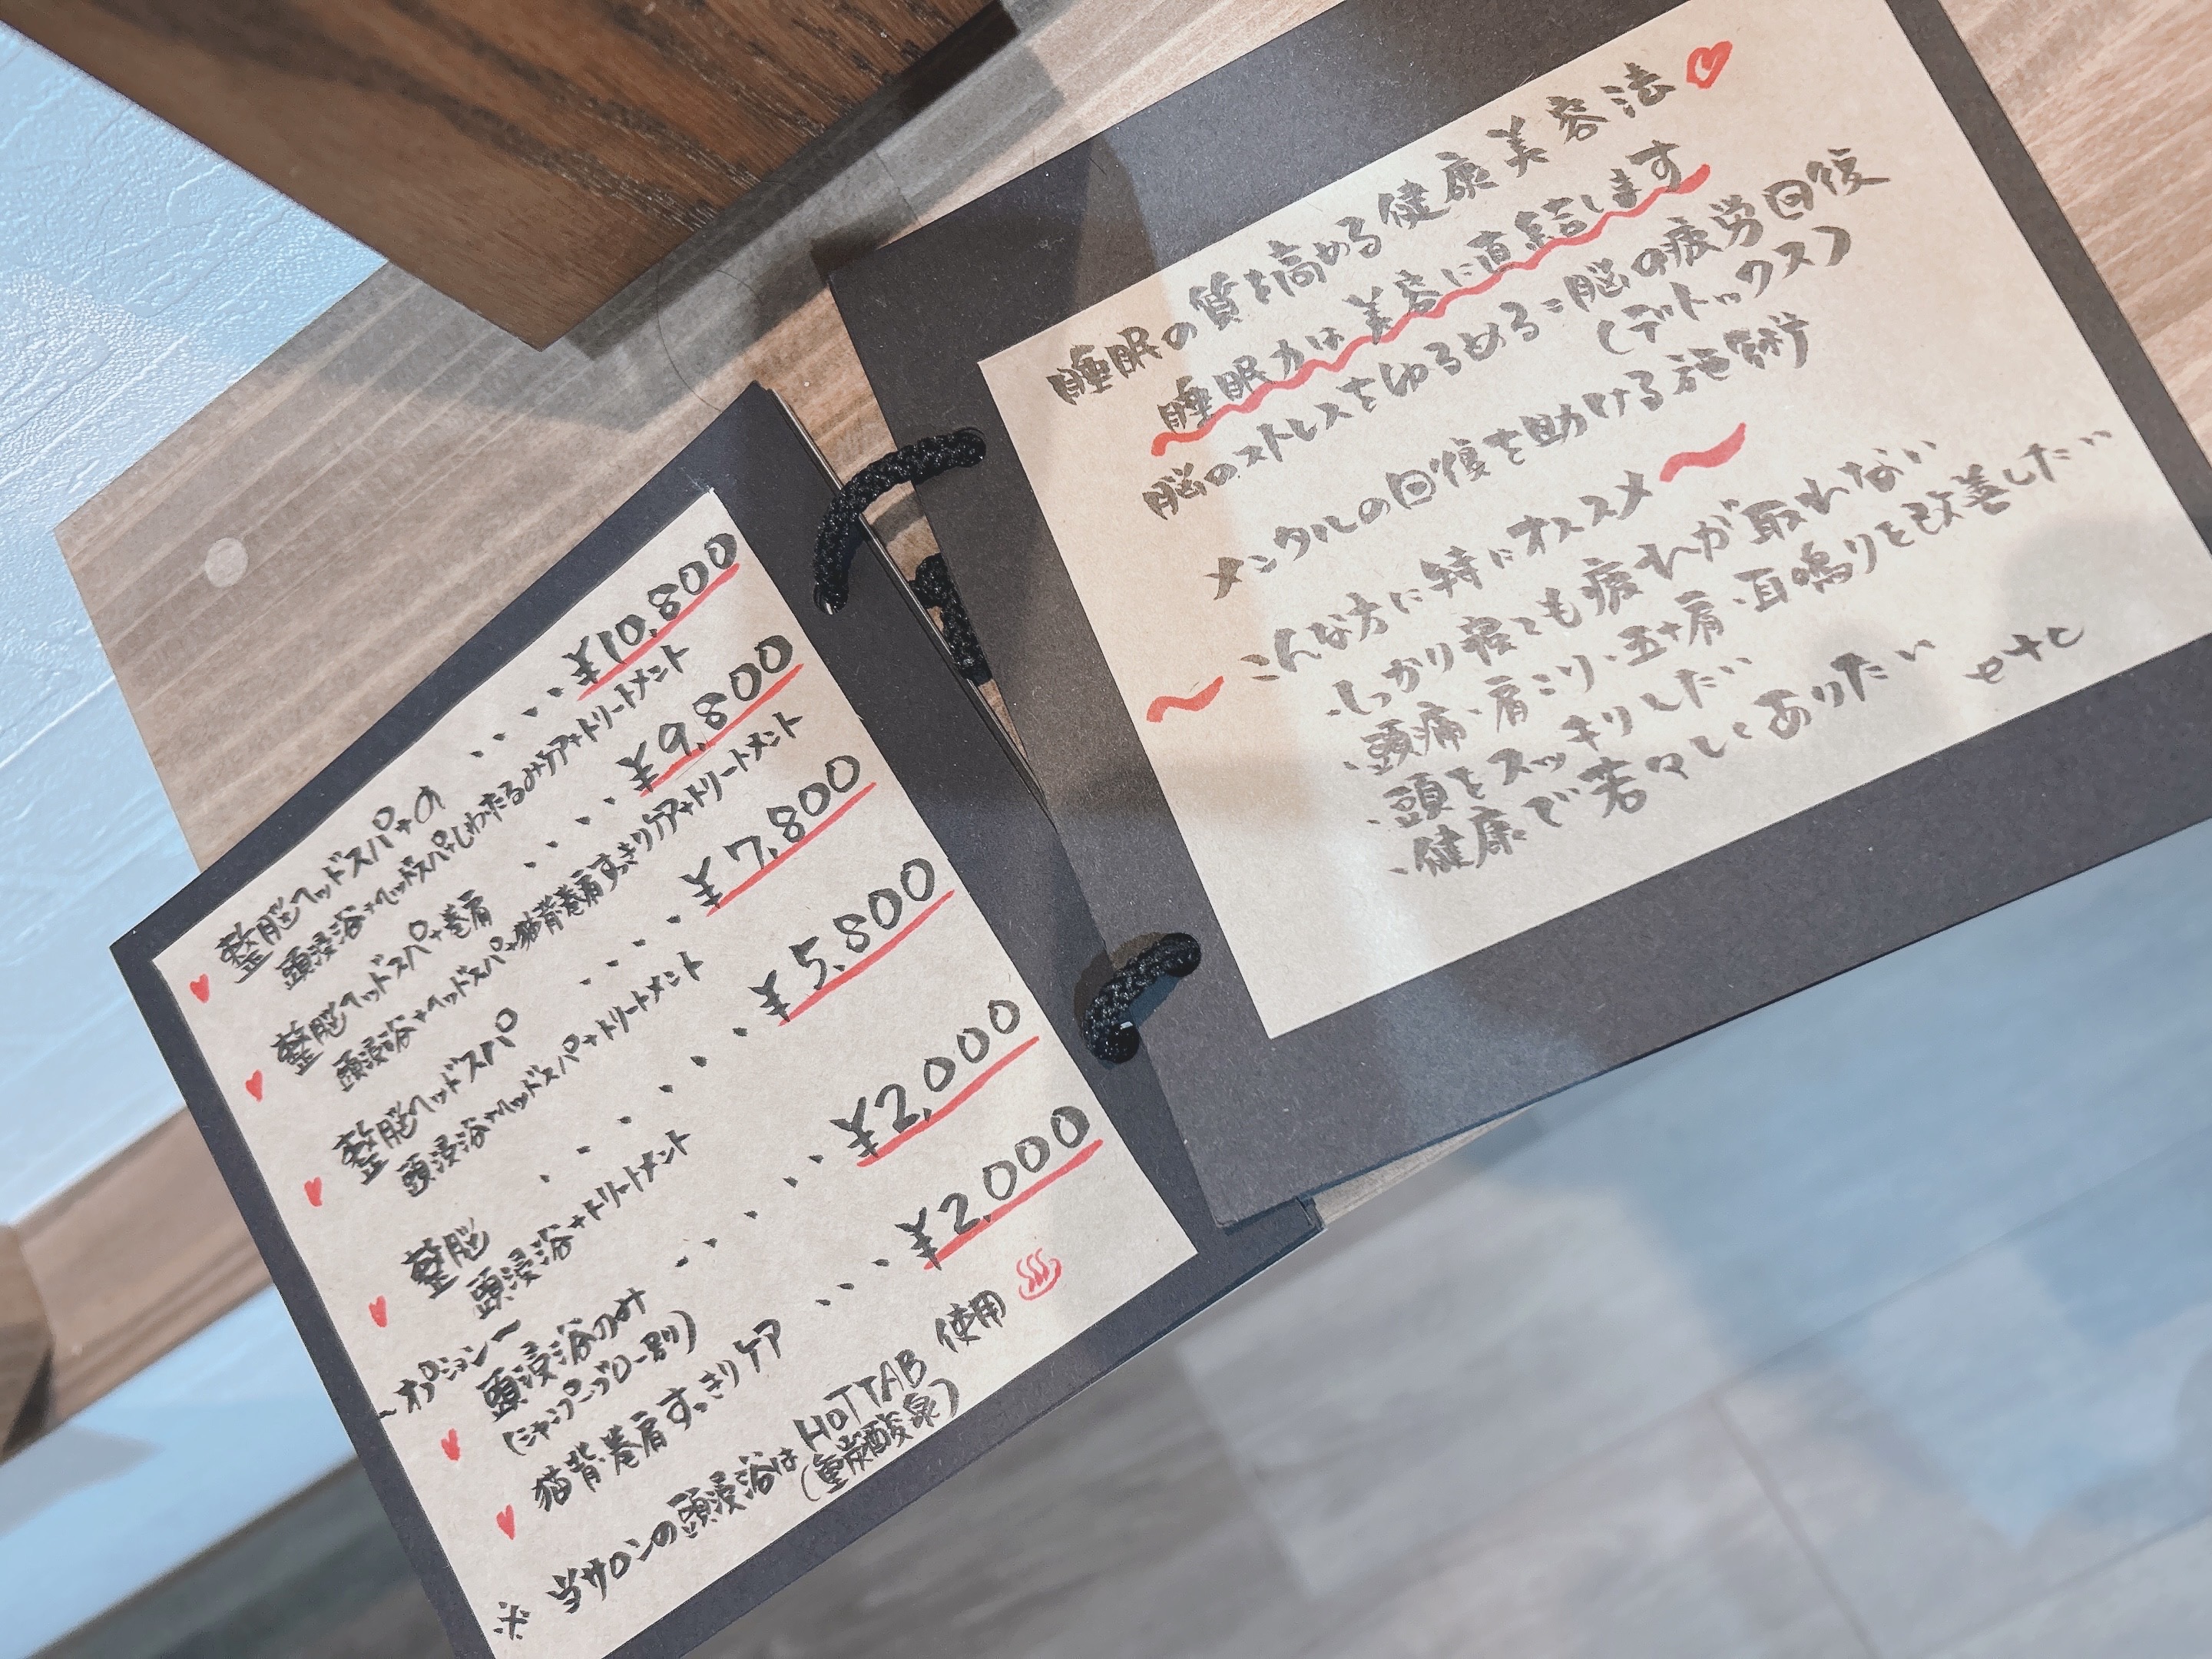 睡眠の質を高める健康美容法
睡眠力は美容に直結します
脳のストレスをゆるめる=脳の疲労回復
(デトックス)
メンタルの回復を助ける施術
〜こんな方に特にオススメ〜
・しっかり寝ても疲れが取れない
・頭痛・肩こり・五十肩・耳鳴りを改善したい
・頭をスッキリしたい
・健康で若々しくありたい
etc
整脳ヘッドスパ+α ・・・・¥10,800
頭浸浴+ヘッドスパ+しわたるみケア+トリートメント
整脳ヘッドスパ+巻肩 ・・・・¥9,800
頭浸浴+ヘッドスパ+猫背巻肩すっきりケア+トリートメント
整脳ヘッドスパ ・・・・¥7,800
頭浸浴+ヘッドスパ+トリートメント
整脳 ・・・・・・¥5,800
頭浸浴+トリートメント
〜オプション〜
頭浸浴のみ ・・・・・¥2,000
(シャンプーブロー別)
猫背・巻肩すっきりケア ・・・・¥2,000
※当サロンの頭浸浴は HOTTAB 使用♨
(重炭酸泉)